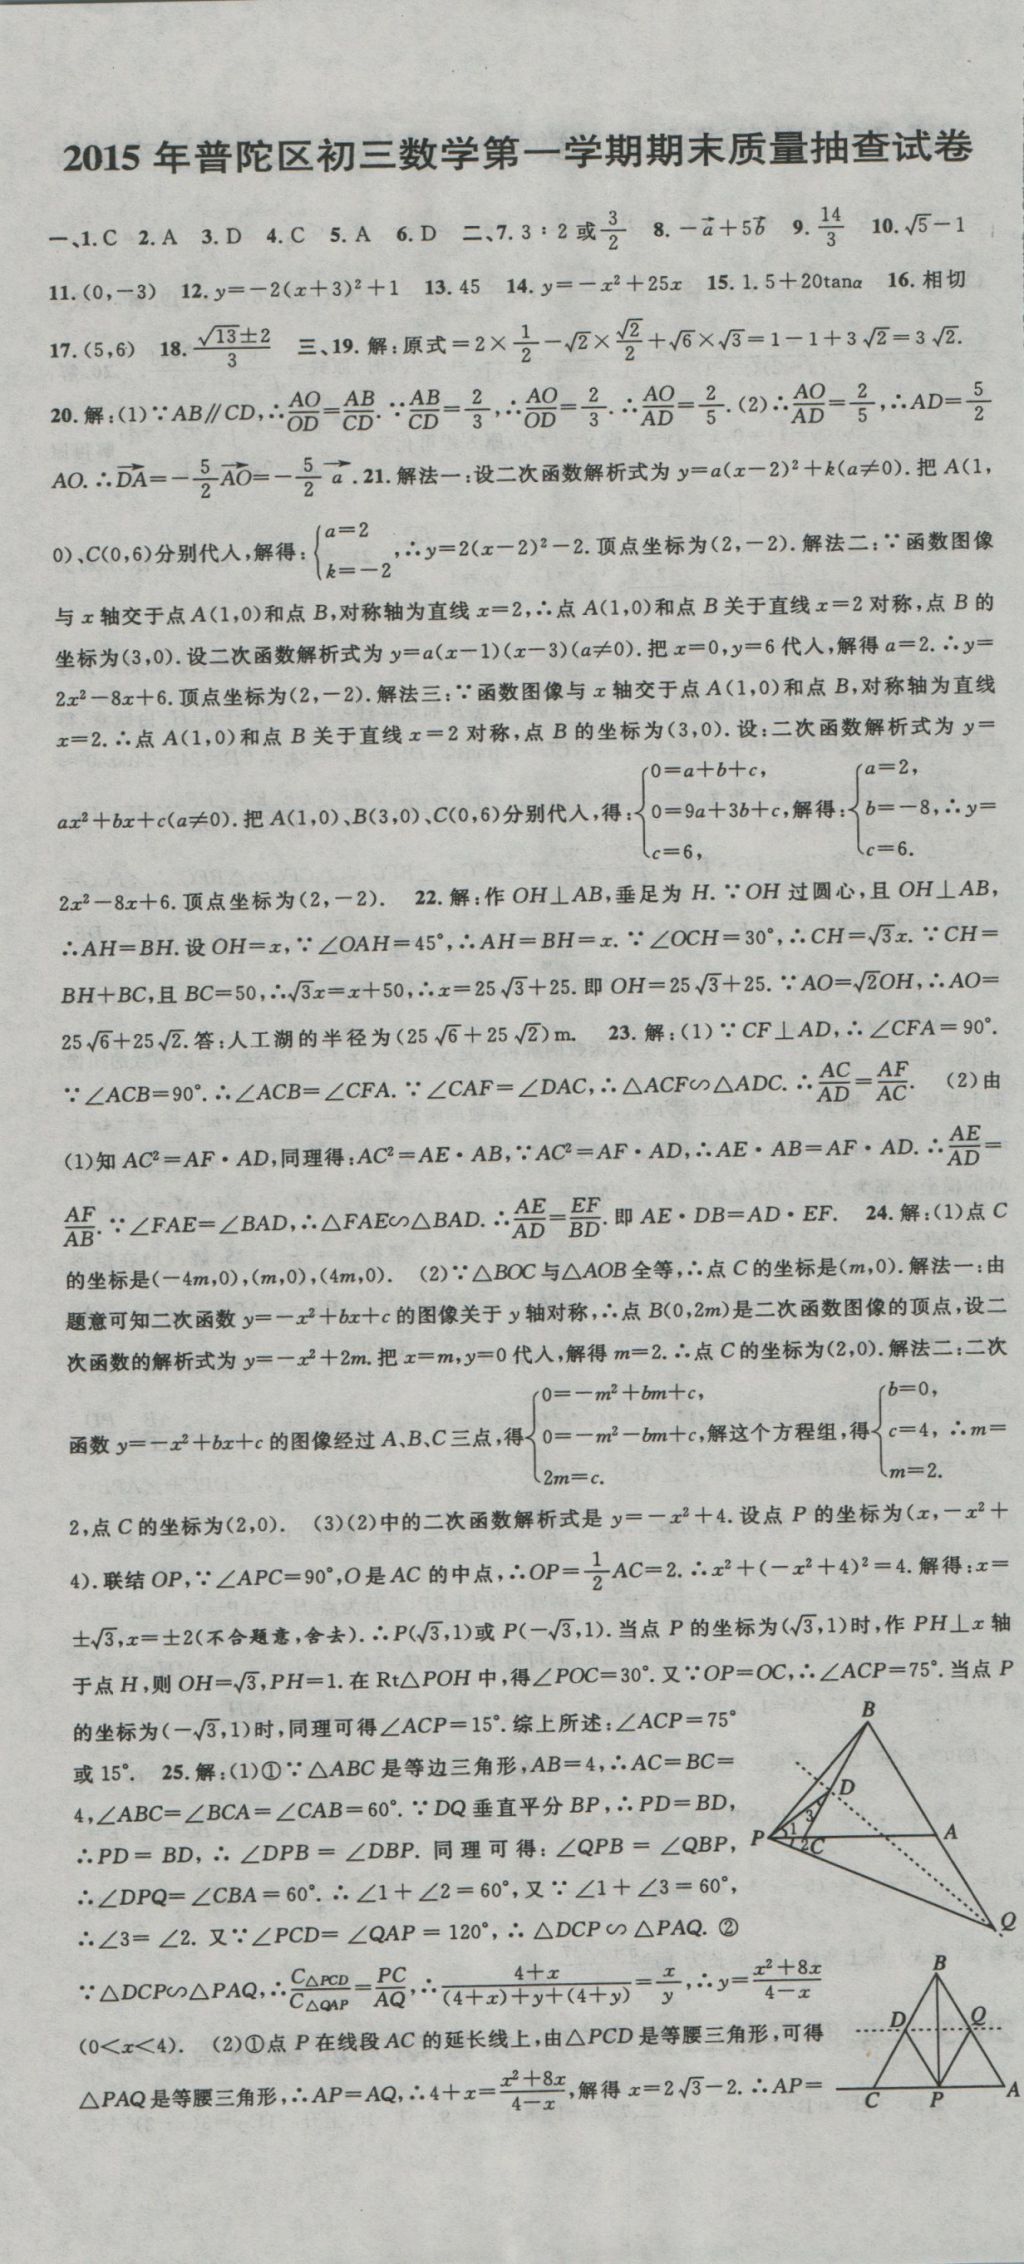 2015 年普陀区初三数学第一学期期末质量抽查试卷
一、1. C 2. A 3. D 4. C 5. A 6. D 二、7. 3∶2 或 3/2 8. −a⃗+5b⃗ 9. 14/3 10. √5−1
11. (0,−3) 12. y=−2(x+3)²+1 13. 45 14. y=−x²+25x 15. 1.5+20tanα 16. 相切
17. (5,6) 18. (√13±2)/3 三、19. 解:原式=2×1/2−√2×√2/2+√6×√3=1−1+3√2=3√2.
20. 解:(1)∵AB∥CD,∴AO/OD=AB/CD.∵AB/CD=2/3,∴AO/OD=2/3.∴AO/AD=2/5.(2)∴AO/AD=2/5,∴AD=5/2
AO.∴DA⃗=−5/2AO⃗=−5/2 a⃗.21. 解法一:设二次函数解析式为 y=a(x−2)²+k(a≠0).把 A(1,
0)、C(0,6)分别代人,解得:{a=2 k=−2,∴y=2(x−2)²−2.顶点坐标为(2,−2).解法二:∵函数图像
与 x 轴交于点 A(1,0)和点 B,对称轴为直线 x=2,∴点 A(1,0)和点 B 关于直线 x=2 对称,点 B 的
坐标为(3,0).设二次函数解析式为 y=a(x−1)(x−3)(a≠0).把 x=0,y=6 代人,解得 a=2.∴y=
2x²−8x+6.顶点坐标为(2,−2).解法三:∵函数图像与 x 轴交于点 A(1,0)和点 B,对称轴为直线
x=2.∴点 A(1,0)和点 B 关于直线 x=2 对称,点 B 的坐标为(3,0).设:二次函数解析式为 y=
ax²+bx+c(a≠0).把 A(1,0)、B(3,0)、C(0,6)分别代人,得:{0=a+b+c, 0=9a+3b+c, c=6,解得:{a=2, b=−8, c=6.∴y=
2x²−8x+6.顶点坐标为(2,−2). 22. 解:作 OH⊥AB,垂足为 H.∵OH 过圆心,且 OH⊥AB,
∴AH=BH.设 OH=x,∵∠OAH=45°,∴AH=BH=x.∵∠OCH=30°,∴CH=√3x.∵CH=
BH+BC,且 BC=50,∴√3x=x+50,∴x=25√3+25.即 OH=25√3+25.∵AO=√2OH,∴AO=
25√6+25√2.答:人工湖的半径为(25√6+25√2)m. 23. 解:(1)∵CF⊥AD,∴∠CFA=90°.
∵∠ACB=90°.∴∠ACB=∠CFA.∵∠CAF=∠DAC,∴△ACF∽△ADC.∴AC/AD=AF/AC. (2)由
(1)知 AC²=AF·AD,同理得:AC²=AE·AB,∵AC²=AF·AD,∴AE·AB=AF·AD.∴AE/AD=
AF/AB.∵∠FAE=∠BAD,∴△FAE∽△BAD.∴AE/AD=EF/BD.即 AE·DB=AD·EF. 24. 解:(1)点 C
的坐标是(−4m,0),(m,0),(4m,0). (2)∵△BOC 与△AOB 全等,∴点 C 的坐标是(m,0).解法一:由
题意可知二次函数 y=−x²+bx+c 的图像关于 y 轴对称,∴点 B(0,2m)是二次函数图像的顶点,设二
次函数的解析式为 y=−x²+2m.把 x=m,y=0 代人,解得 m=2.∴点 C 的坐标为(2,0).解法二:二次
函数 y=−x²+bx+c 的图像经过 A、B、C 三点,得{0=−m²+bm+c, 0=−m²−bm+c, 2m=c.解这个方程组,得{b=0, c=4, m=2.∴m=
2,点 C 的坐标为(2,0). (3)(2)中的二次函数解析式是 y=−x²+4.设点 P 的坐标为(x,−x²+
4).联结 OP,∵∠APC=90°,O 是 AC 的中点,∴OP=1/2AC=2.∴x²+(−x²+4)²=4.解得:x=
±√3,x=±2(不合题意,舍去).∴P(√3,1)或 P(−√3,1).当点 P 的坐标为(√3,1)时,作 PH⊥x 轴
于点 H,则 OH=√3,PH=1.在 Rt△POH 中,得∠POC=30°.又∵OP=OC,∴∠ACP=75°.当点 P
的坐标为(−√3,1)时,同理可得∠ACP=15°.综上所述:∠ACP=75°
或 15°. 25. 解:(1)①∵△ABC 是等边三角形,AB=4,∴AC=BC=
4,∠ABC=∠BCA=∠CAB=60°.∵DQ 垂直平分 BP,∴PD=BD,
∴PD=BD,∴∠DPB=∠DBP.同理可得:∠QPB=∠QBP,
∴∠DPQ=∠CBA=60°.∴∠1+∠2=60°,又∵∠1+∠3=60°,
∴∠3=∠2.又∵∠PCD=∠QAP=120°,∴△DCP∽△PAQ.②
∵△DCP∽△PAQ,∴C△PCD/C△QAP=PC/AQ,∴(4+x)/((4+x)+y+(4+y))=x/y,∴y=(x²+8x)/(4−x)
(0<x<4). (2)①点 P 在线段 AC 的延长线上,由△PCD 是等腰三角形,可得
△PAQ 是等腰三角形,∴AP=AQ,∴4+x=(x²+8x)/(4−x),解得 x=2√3−2.∴AP=
B
D
3
P 1 2 C A
Q
B
D Q
C P A